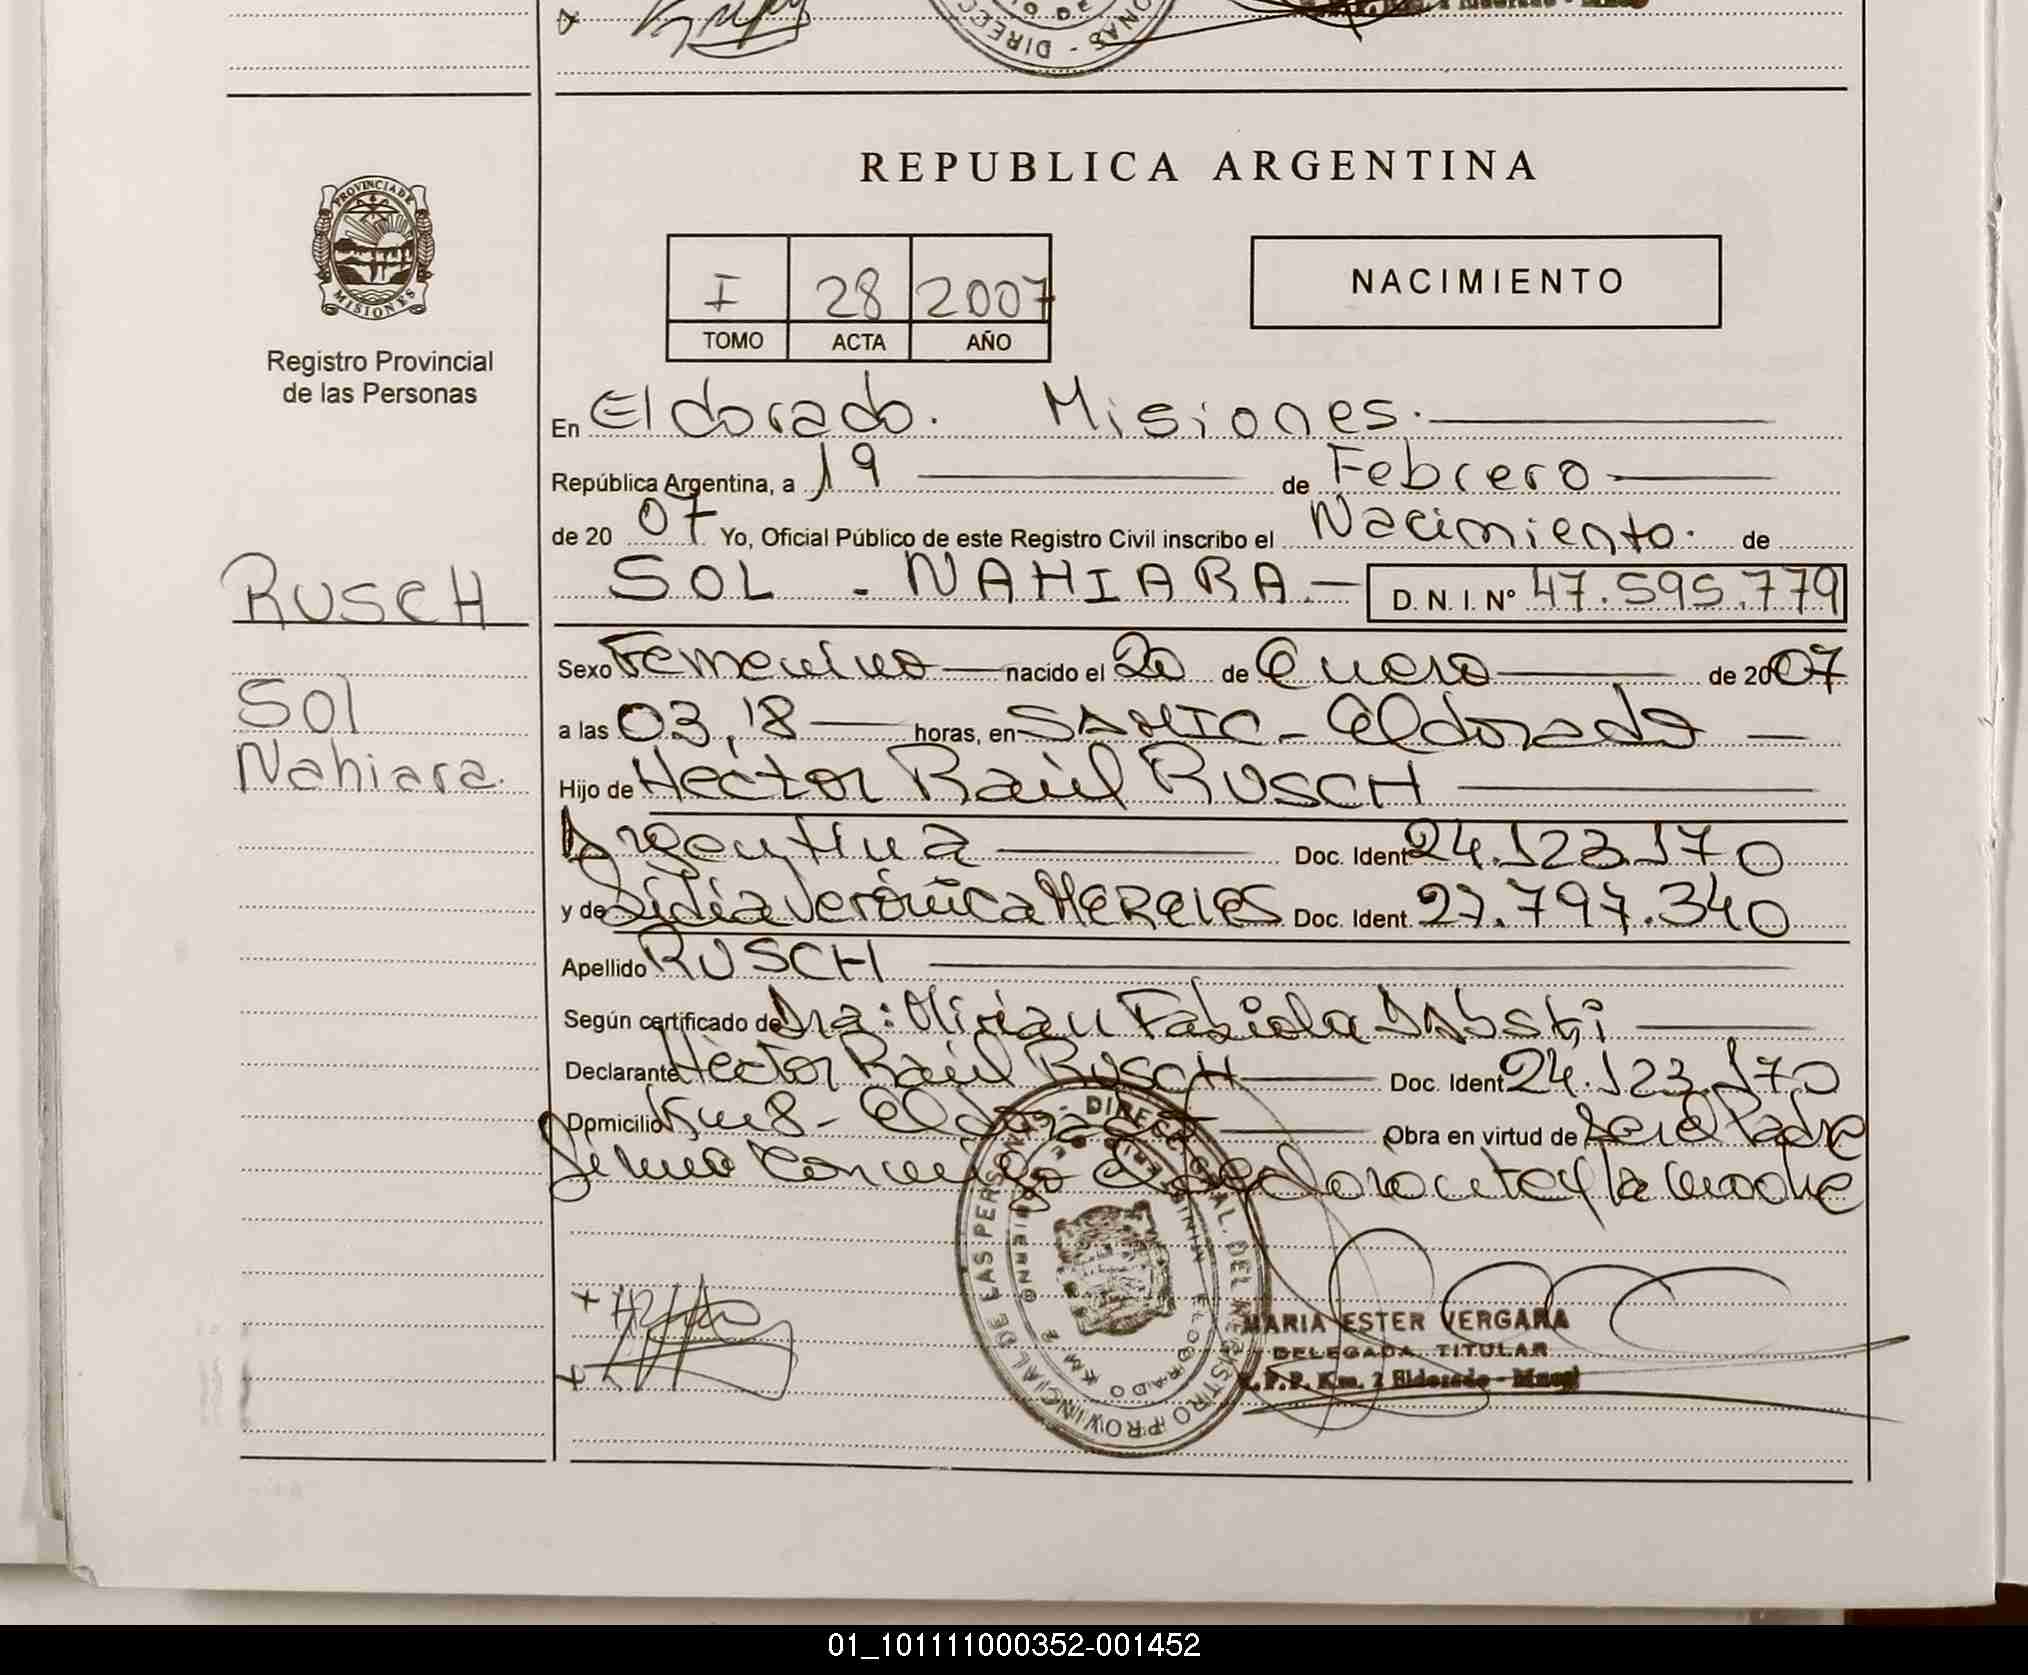 REPUBLICA ARGENTINA
PROVINCIA DE
MISIONES
Registro Provincial
de las Personas
I 28 2007
TOMO ACTA AÑO
NACIMIENTO
En Eldorado. Misiones.
República Argentina, a 19 de Febrero
de 2007 Yo, Oficial Público de este Registro Civil inscribo el Nacimiento. de
RUSCH
SOL - NAHIARA. D. N. I. Nº 47.595.779
Sexo Femenino nacido el 20 de Enero de 2007
Sol
a las 03,18 horas, en SAMIC - Eldorado
Nahiara.
Hijo de Héctor Raúl RUSCH
Argentina Doc. Ident 24.123.170
y de Lidia Verónica MERELES Doc. Ident. 27.797.340
Apellido RUSCH
Según certificado de Dra: Mirian Fabiola
Declarante Héctor Raúl RUSCH Doc. Ident 24.123.170
Domicilio Km 8 - Eldorado Obra en virtud de ser el Padre
firma conmigo el declarante y la madre
DIRECC. GRAL. DEL REGISTRO PROVINCIAL DE LAS PERSONAS
ELDORADO KM 2
MARIA ESTER VERGARA
DELEGADA TITULAR
R.P.P. Km. 2 Eldorado - Mnes
01_101111000352-001452